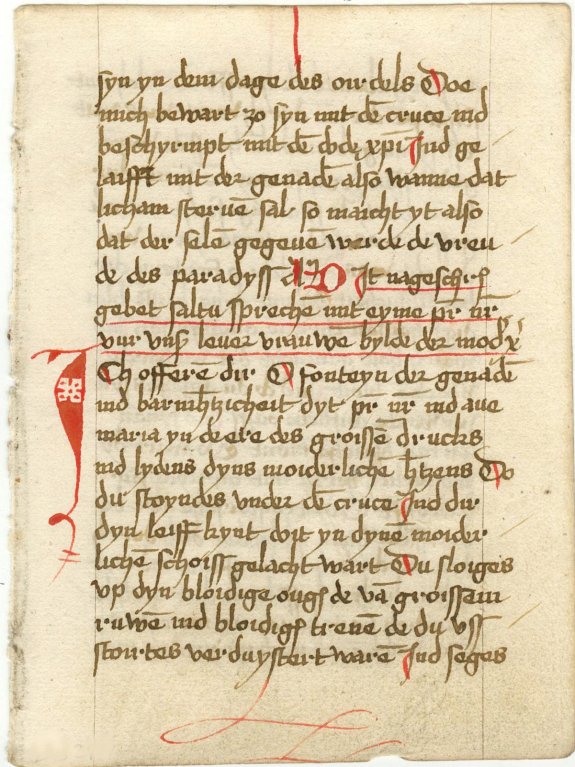 syn yn dem dage des oirdels Doe
mich bewart zo syn mit dē cruce ind
beschyrmpt mit dē dode xp̄i Ind ge
laifft mit der genadē also wanne dat
licham steruē sal so maicht yt also
dat der selē gegeuē werde de vreu
de des paradyss Dit nageschr̄
gebet saltu sprechē mit eyme pr̄ nr̄
vur vns leuer vrauwē bylde der mod'
Ich offerē dir O fonteyn der genadē
ind barmh'tzicheit dyt pr̄ nr̄ ind aue
maria yn de ere des groissē drucks
ind lydens dyns moiderlichē h'tzens Do
du stoyndes vnder dē cruce Ind dir
dyn leiff kynt doit yn dynē moider
lichē schoiss gelacht wart Du sloiges
vp dyn bloidige ougē de vā groissem
ruwē ind bloidigē trenē de du vss
stortes verduystert warē Ind seges